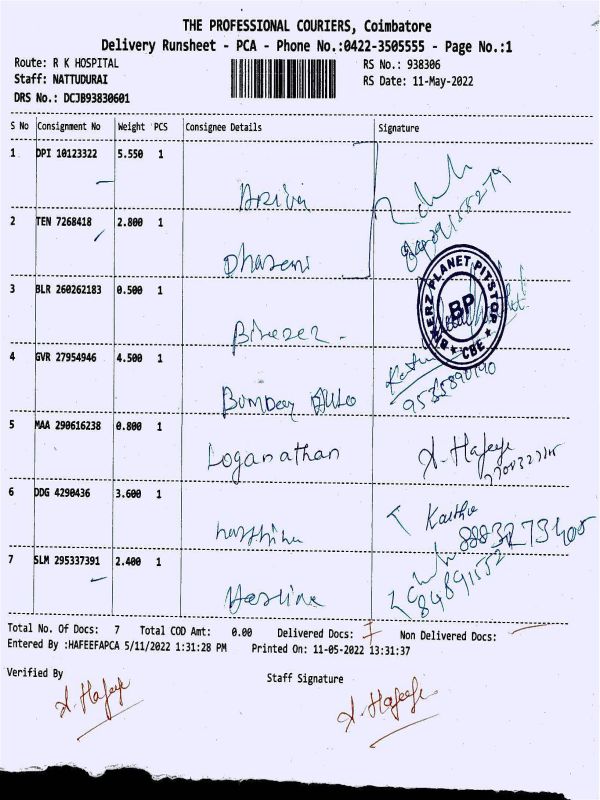 THE PROFESSIONAL COURIERS, Coimbatore
Delivery Runsheet - PCA - Phone No.:0422-3505555 - Page No.:1
Route: R K HOSPITAL
Staff: NATTUDURAI
DRS No.: DCJB93830601
RS No.: 938306
RS Date: 11-May-2022
S No Consignment No Weight PCS Consignee Details Signature
1 DPI 10123322 5.550 1
2 TEN 7268418 2.800 1
Dharani
3 BLR 260262183 0.500 1
BIKERZ PLANET PITSTOP
BP
CBE
4 GVR 27954946 4.500 1
Bombay
9585890190
5 MAA 290616238 0.800 1
Loganathan
A. Hafeefe
6 DDG 4290436 3.600 1
Karthi
7 SLM 295337391 2.400 1
Total No. Of Docs: 7 Total COD Amt: 0.00 Delivered Docs: 7 Non Delivered Docs:
Entered By :HAFEEFAPCA 5/11/2022 1:31:28 PM Printed On: 11-05-2022 13:31:37
Verified By
Staff Signature
A. Hafeefe
A. Hafeefe